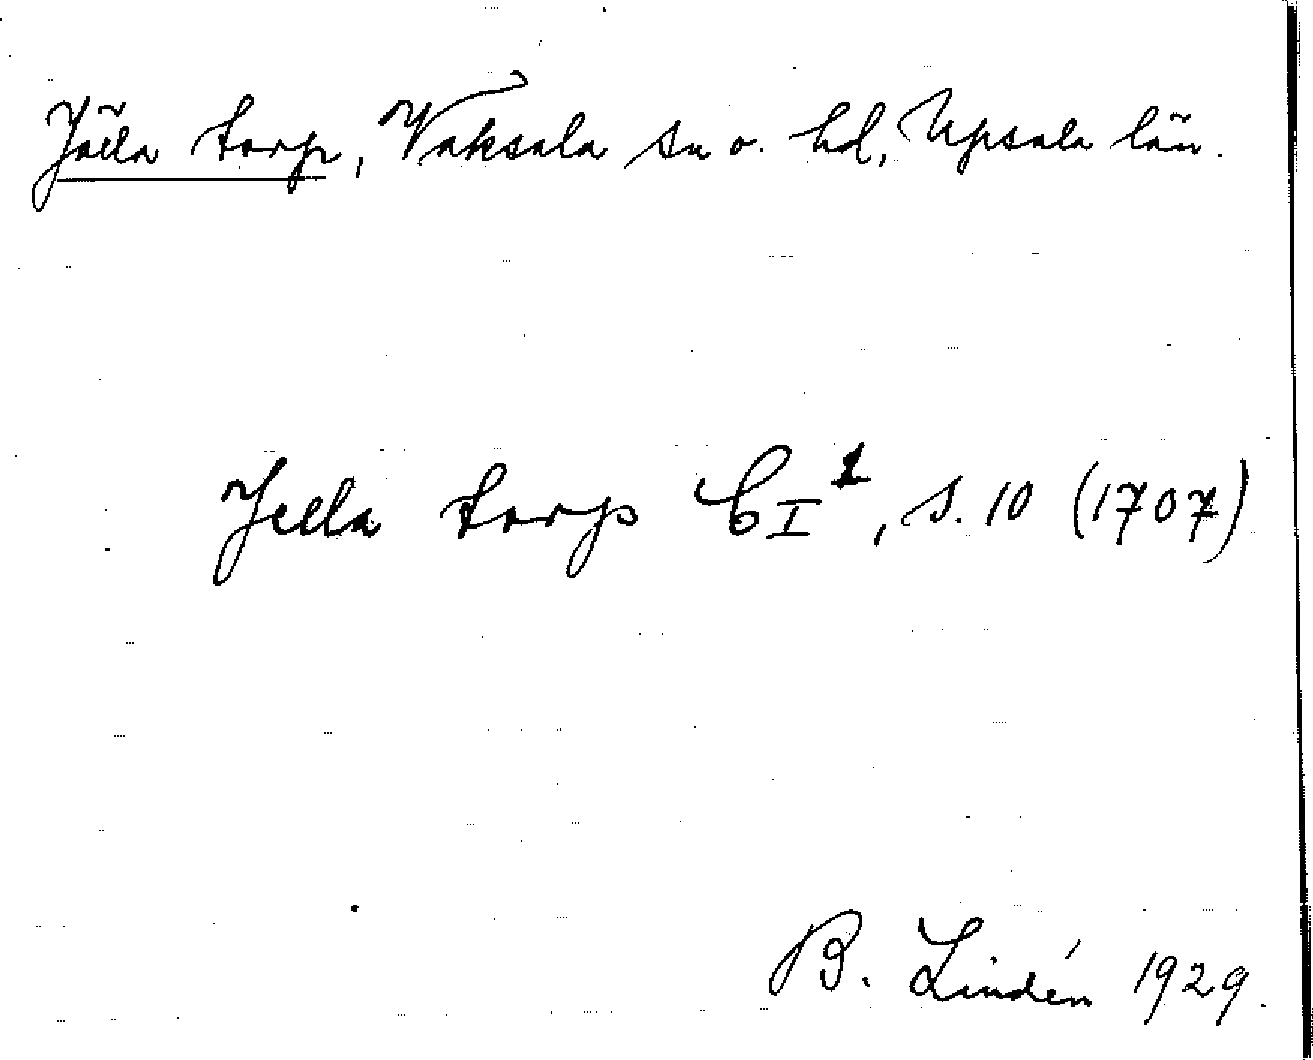 Jälla torp, Vaksala sn o. hd, Upsala län.
Jella torp C I 1, s. 10 (1707)
B. Lindén 1929.